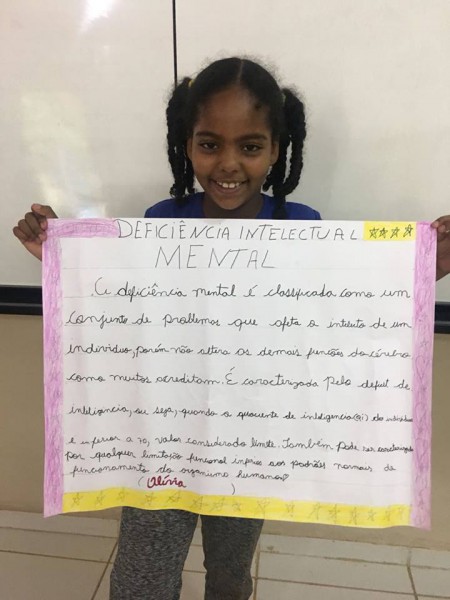 DEFICIÊNCIA INTELECTUAL
MENTAL
A deficiência mental é classificada como um
conjunto de problemas que afeta o intuito de um
individuo, porém não altera as demais funções do cérebro
como muitos acreditam. É caracterizada pelo deficit de
inteligência, ou seja, quando o quociente de inteligencia (qi) do individuo
é inferior a 70, valor considerado limite. Também pode ser caracterizada
por qualquer limitação funcional aos padrões normais de
funcionamento do organismo humano
(Olívia )